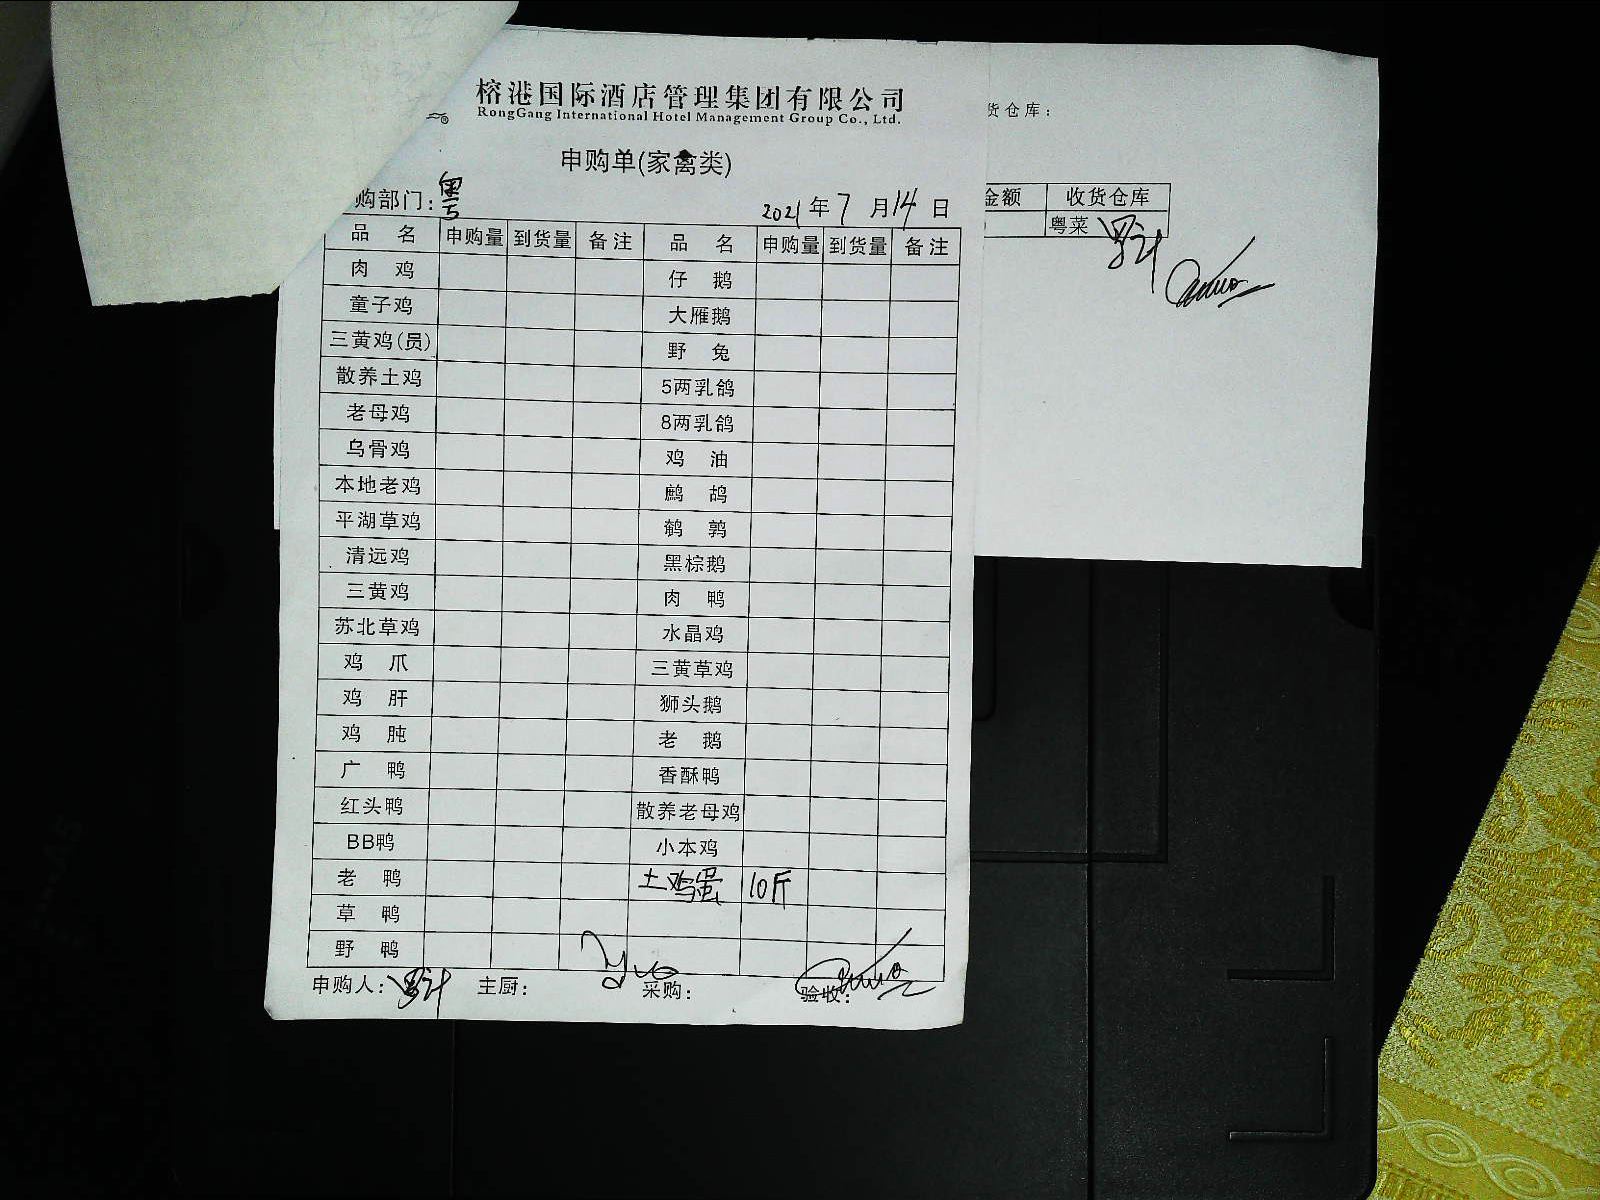 榕港国际酒店管理集团有限公司
RongGang International Hotel Management Group Co., Ltd.
申购单(家禽类)
购部门: 粤
2021年7月14日
品 名 申购量 到货量 备注 品 名 申购量 到货量 备注
肉 鸡 仔 鹅
童子鸡 大雁鹅
三黄鸡(员) 野 兔
散养土鸡 5两乳鸽
老母鸡 8两乳鸽
乌骨鸡 鸡 油
本地老鸡 鹧 鸪
平湖草鸡 鹌 鹑
清远鸡 黑棕鹅
三黄鸡 肉 鸭
苏北草鸡 水晶鸡
鸡 爪 三黄草鸡
鸡 肝 狮头鹅
鸡 肫 老 鹅
广 鸭 香酥鸭
红头鸭 散养老母鸡
BB鸭 小本鸡
老 鸭 土鸡蛋 10斤
草 鸭
野 鸭
申购人: 主厨: 采购: 验收:
货仓库:
金额 收货仓库
粤菜